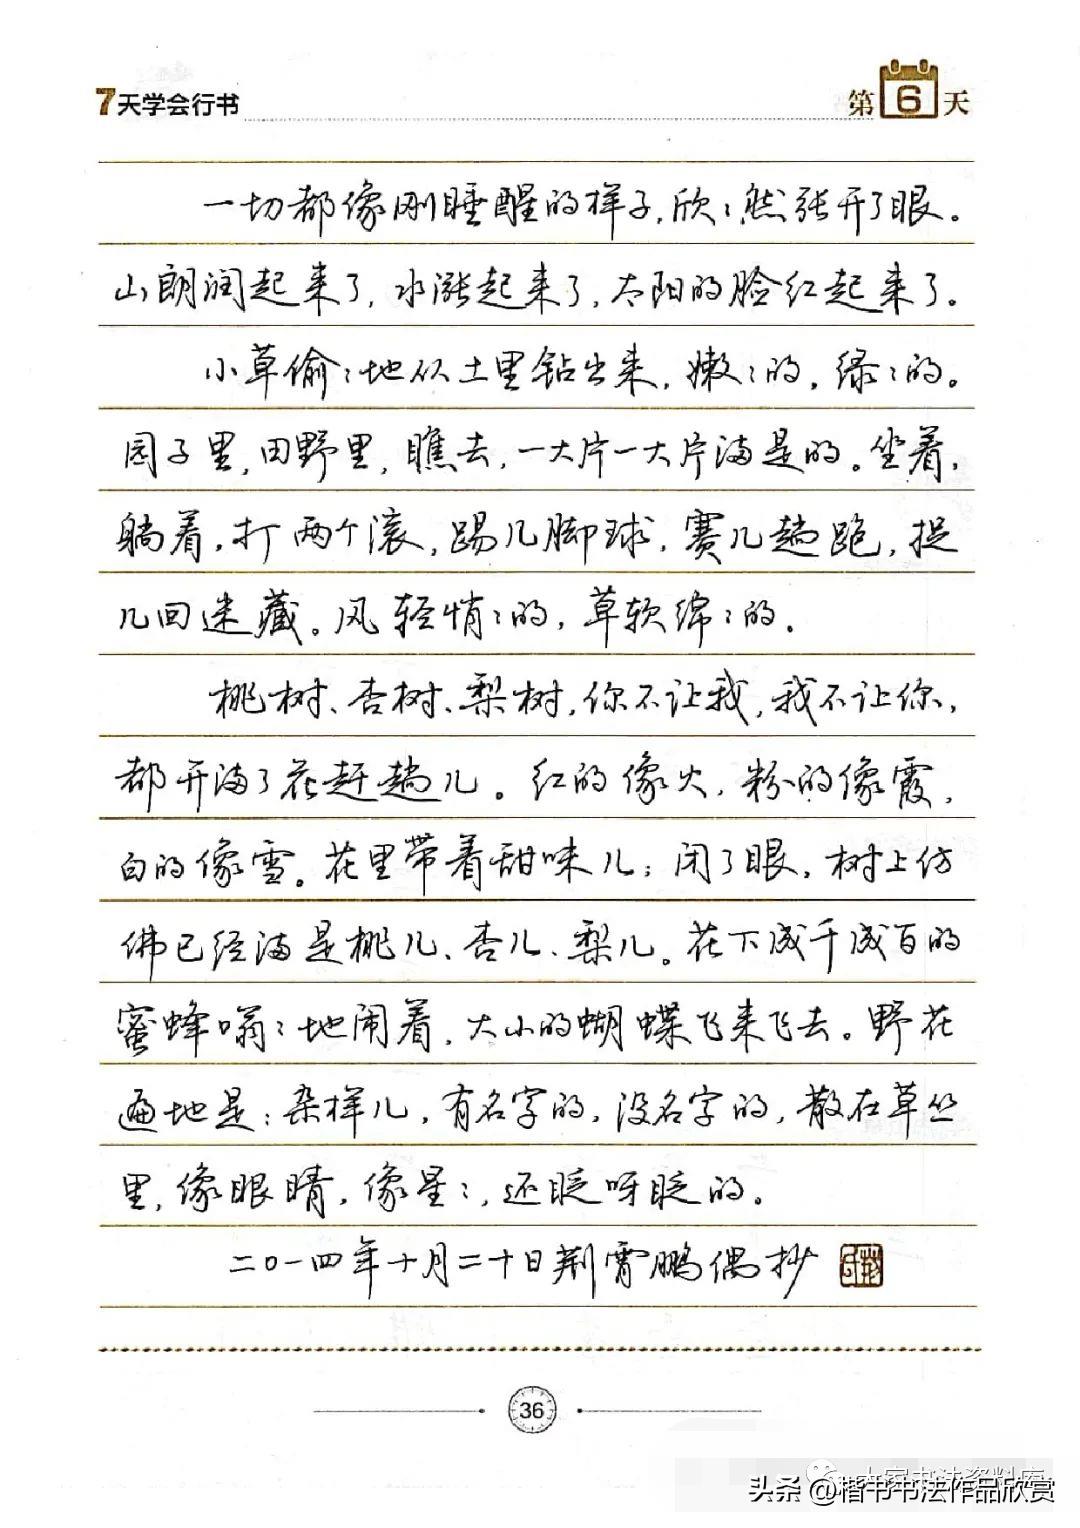 7天学会行书
第6天
一切都像刚睡醒的样子,欣:然张开了眼。
山朗润起来了,水涨起来了,太阳的脸红起来了。
小草偷:地从土里钻出来,嫩:的,绿:的。
园子里,田野里,瞧去,一大片一大片满是的。坐着,
躺着,打两个滚,踢几脚球,赛几趟跑,捉
几回迷藏。风轻悄:的,草软绵:的。
桃树、杏树、梨树,你不让我,我不让你,
都开满了花赶趟儿。红的像火,粉的像霞,
白的像雪。花里带着甜味儿;闭了眼,树上仿
佛已经满是桃儿、杏儿、梨儿。花下成千成百的
蜜蜂嗡:地闹着,大小的蝴蝶飞来飞去。野花
遍地是:杂样儿,有名字的,没名字的,散在草丛
里,像眼睛,像星:,还眨呀眨的。
二〇一四年十月二十日荆霄鹏偶抄
36
大家书法资料库
头条@楷书书法作品欣赏